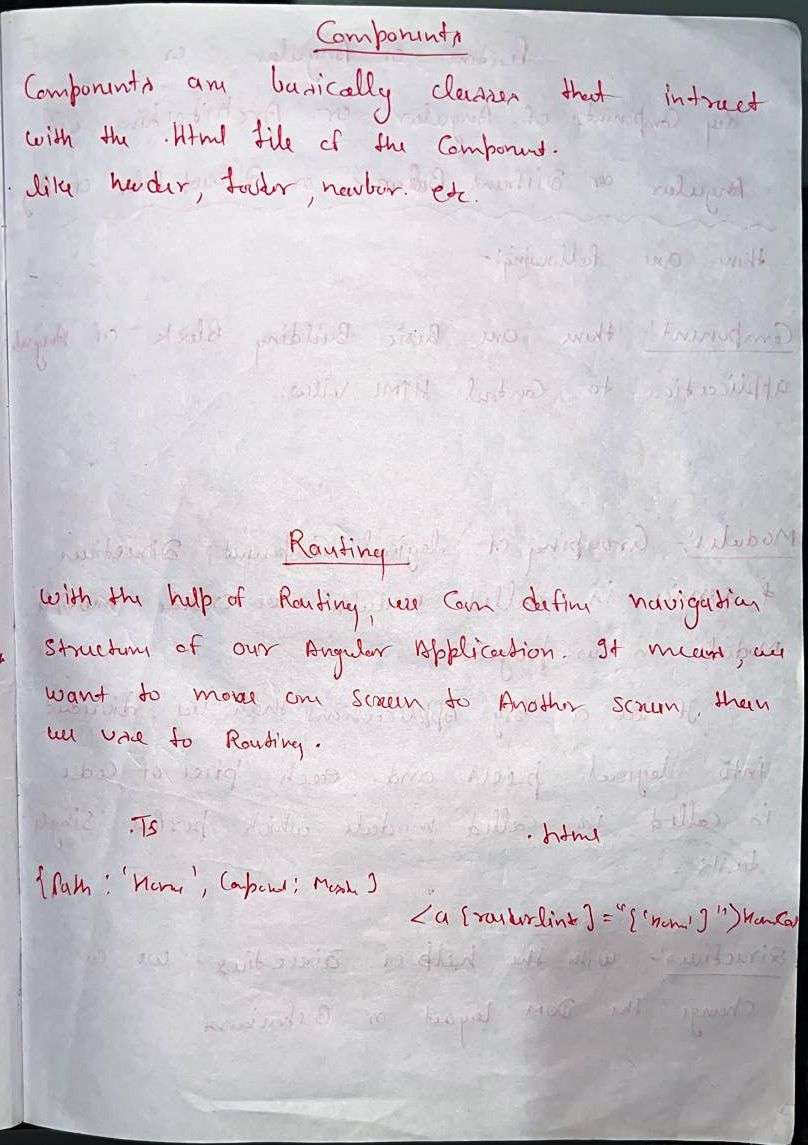 Components
Components are basically classes that intract
with the .Html file of the Component.
like header, footer, navbar. etc.
Routing
with the help of Routing, we Can define navigation
structure of our Angular Application. It means, we
want to move one screen to Another screen, then
we use to Routing.
.Ts
.html
{Path : 'Home',
<a [routerlink] = "['home']">